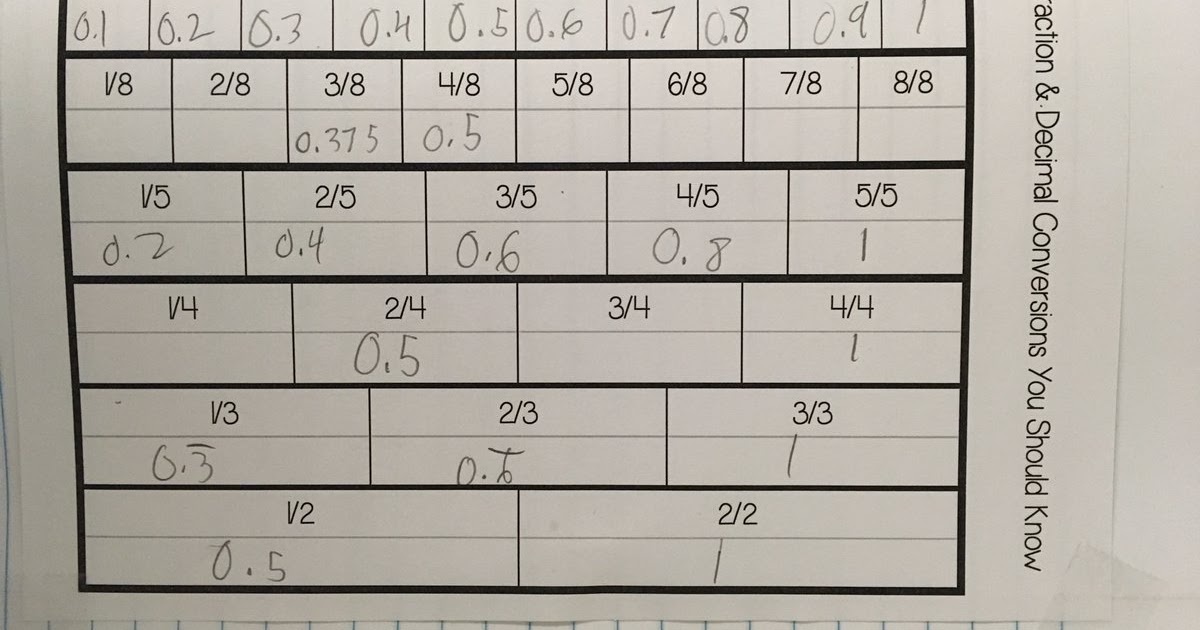 0.1 0.2 0.3 0.4 0.5 0.6 0.7 0.8 0.9 1
1/8 2/8 3/8 4/8 5/8 6/8 7/8 8/8
0.375 0.5
1/5 2/5 3/5 4/5 5/5
0.2 0.4 0.6 0.8 1
1/4 2/4 3/4 4/4
0.5 1
1/3 2/3 3/3
0.3̅ 0.6̅ 1
1/2 2/2
0.5 1
raction & Decimal Conversions You Should Know